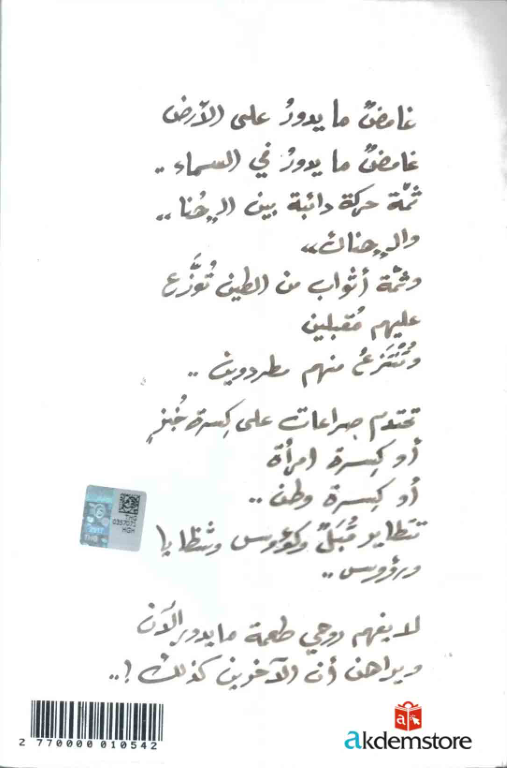 غامضٌ ما يدورُ على الأرض
غامضٌ ما يدورُ في السماء ..
ثمّة حركة دائبة بين الـ«هُنا»
والـ«هناك»
وثمّة أثواب من الطين تُوزَّع
عليهم مُقبلين
وتُنتزعُ منهم مطرودين ..
تحتدم صراعات على كِسرة خُبزٍ
أو كِسرة امرأة
أو كِسرة وطن ..
تتطاير قُبَلٌ وكؤوس وشظايا
ورؤوس ..
لا يفهم روحي طعمة ما يدور الآن
ويراهن أن الآخرين كذلك !..
2017
2 770000 010542
akdemstore